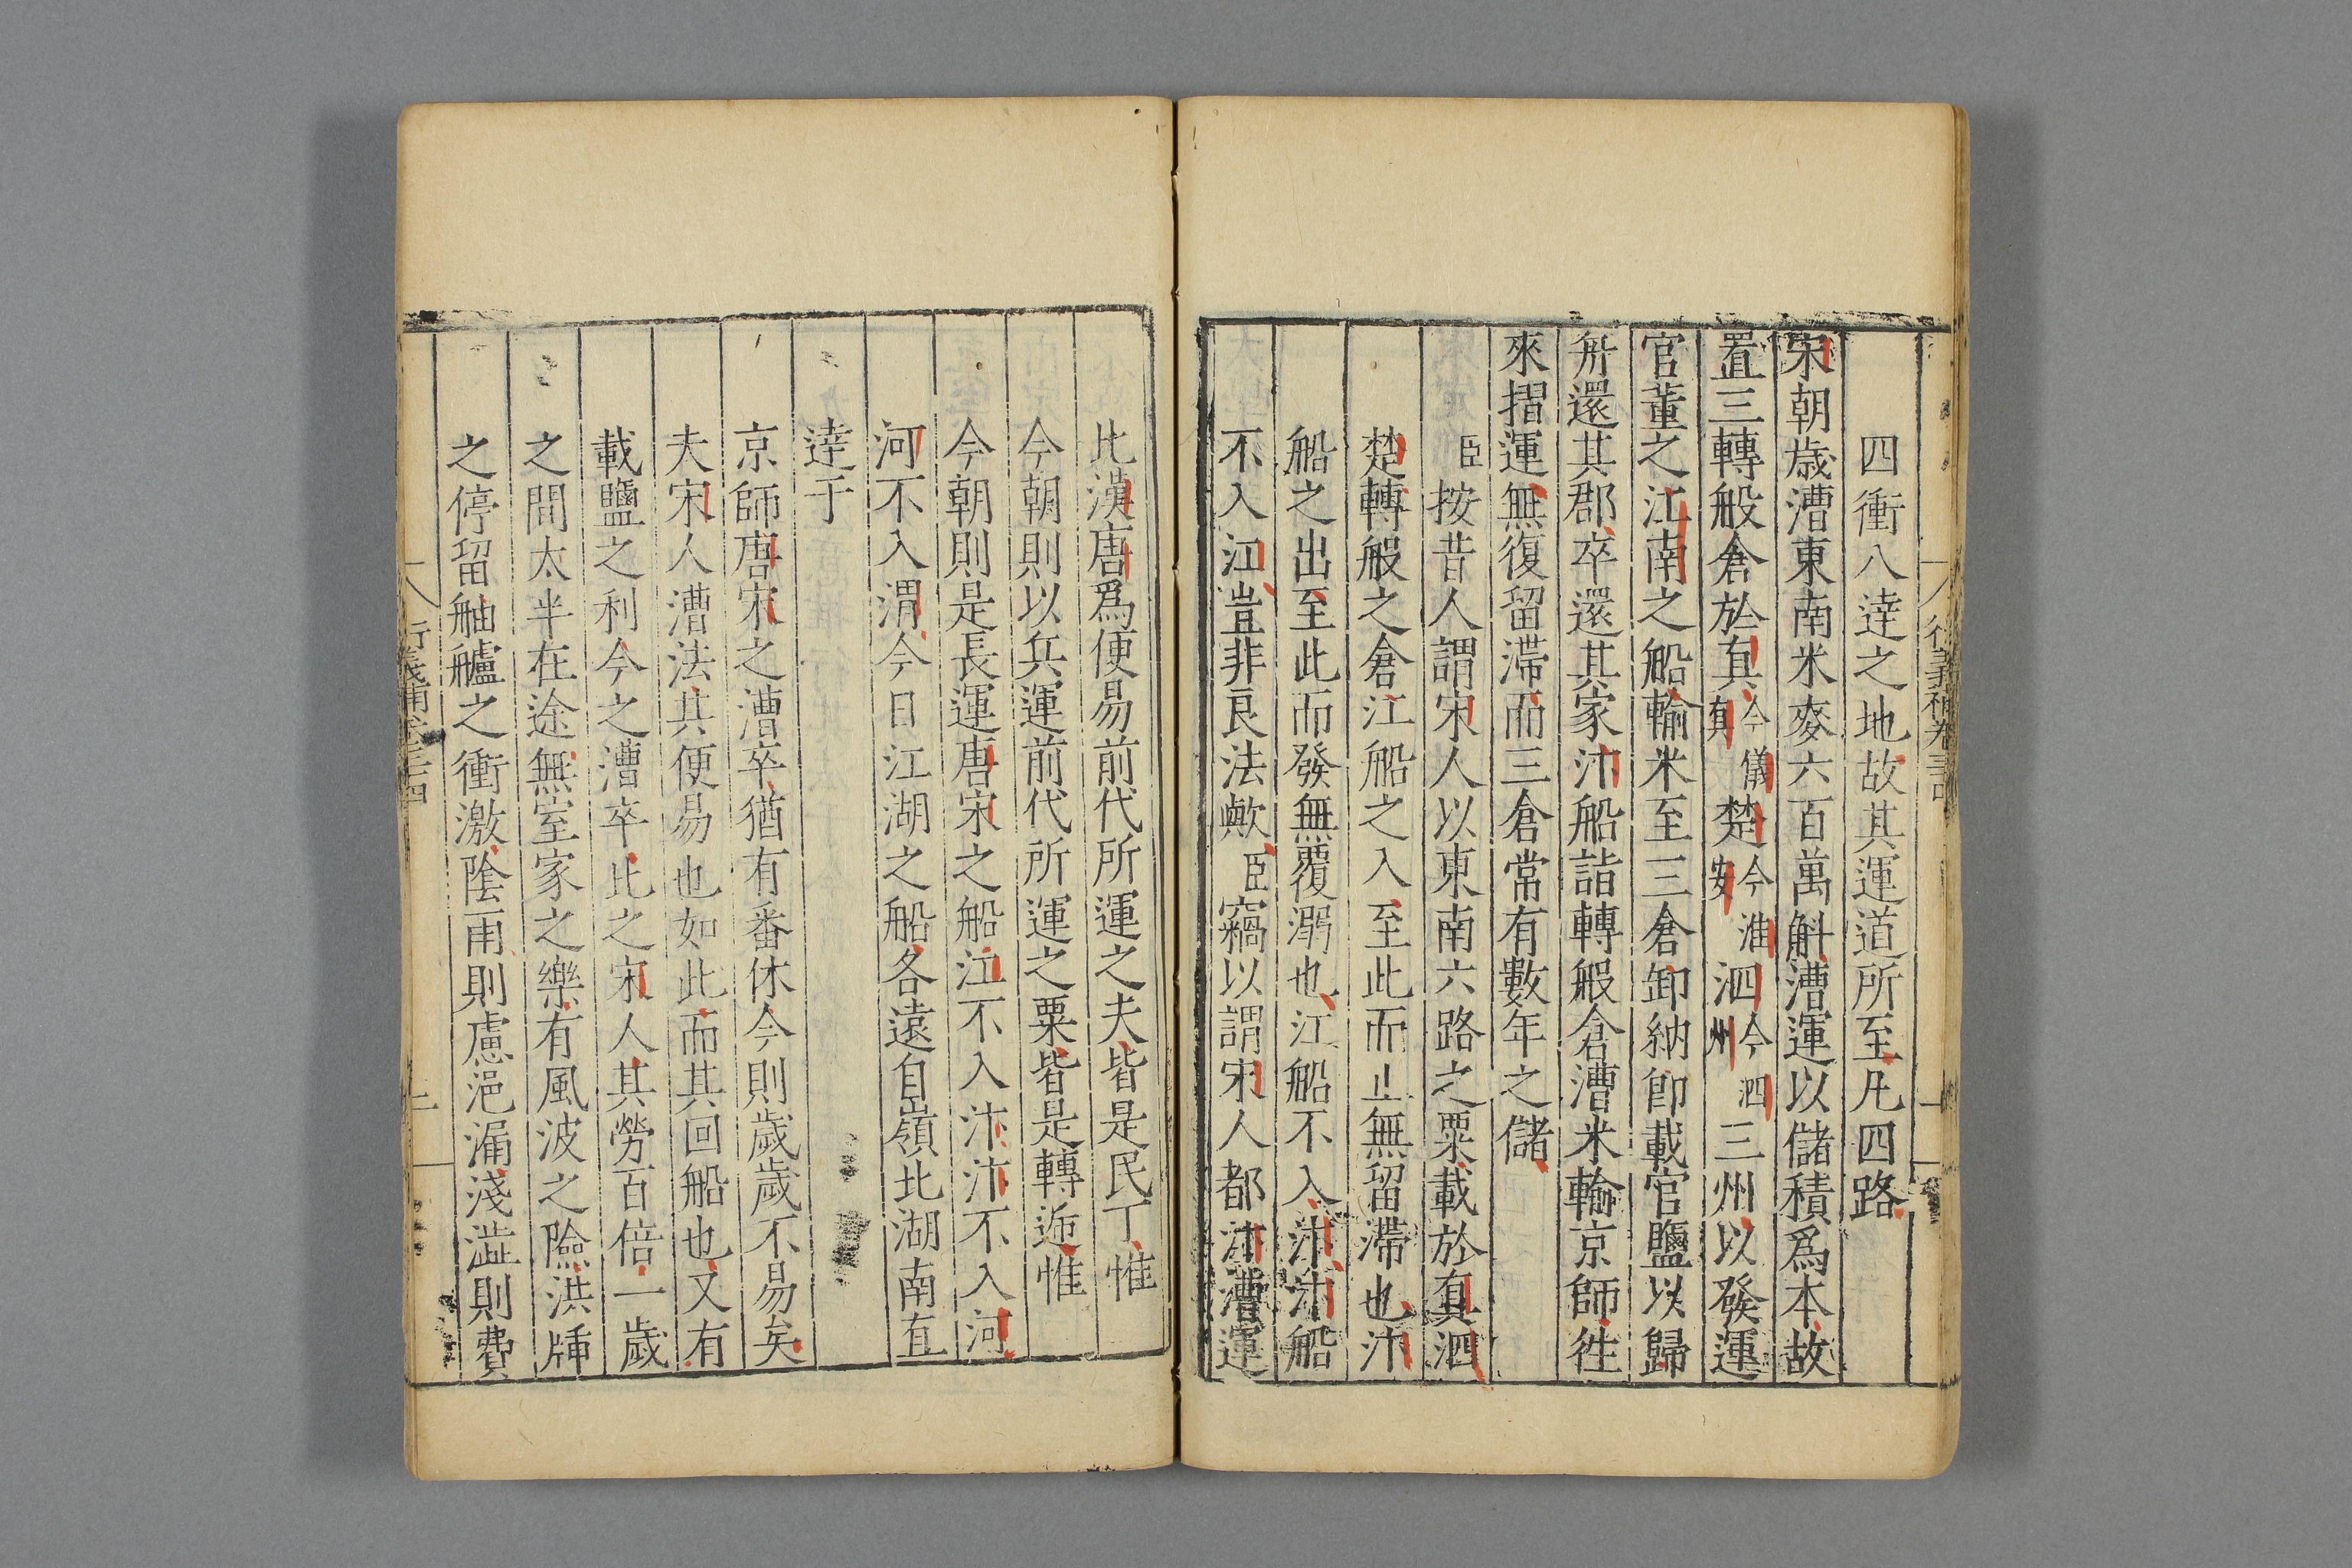 四衝八逹之地故其運道所至凡四路
宋朝歲漕東南米麥六百萬斛漕運以儲積爲本故
置三轉般倉於真今儀真楚今淮安泗今泗州三州以發運
官董之江南之船輸米至三倉卸納卽載官鹽以歸
舟還其郡卒還其家汴船詣轉般倉漕米輸京師徃
來摺運無復留滯而三倉常有數年之儲
臣按昔人謂宋人以東南六路之粟載於真泗
楚轉般之倉江船之入至此而止無留滯也汴
船之出至此而發無覆溺也江船不入汴汴船
不入江豈非良法歟臣竊以謂宋人都汴漕運
比漢唐爲便易前代所運之夫皆是民丁惟
今朝則以兵運前代所運之粟皆是轉逓惟
今朝則是長運唐宋之船江不入汴汴不入河
河不入渭今日江湖之船各遠自嶺北湖南直
逹于
京師唐宋之漕卒猶有番休今則歲歲不易矣
夫宋人漕法其便易也如此而其回船也又有
載鹽之利今之漕卒比之宋人其勞百倍一歲
之間太半在途無室家之樂有風波之險洪牐
之停留舳艫之衝激隂雨則慮浥漏淺澁則費
衍義補卷三十四